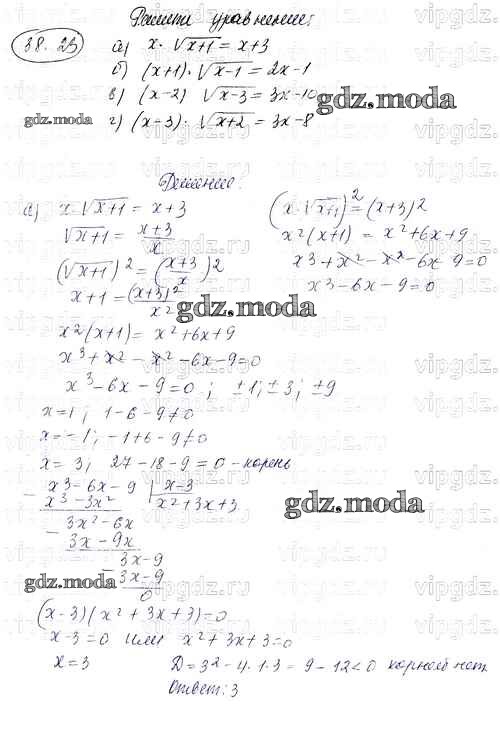 Решити уравнение:
38.23 а) x·√(x+1) = x+3
б) (x+1)·√(x-1) = 2x-1
в) (x-2) √(x-3) = 3x-10
г) (x-3)·√(x+2) = 3x-8
gdz.moda
gdz.moda
Решение:
а) x·√(x+1) = x+3
√(x+1) = (x+3)/x
(√(x+1))² = ((x+3)/x)2
x+1 = (x+3)²/x²
x²(x+1) = x²+6x+9
x³+x²-x²-6x-9=0
x³-6x-9=0; ±1; ±3; ±9
x=1; 1-6-9≠0
x=-1; -1+6-9≠0
x=3; 27-18-9=0 - корень
(x·√(x+1))² = (x+3)2
x²(x+1) = x²+6x+9
x³+x²-x²-6x 9=0
x³-6x-9=0
gdz.moda
x³-6x-9 | x-3
x³-3x² x²+3x+3
3x²-6x
3x-9x
3x-9
3x-9
0
gdz.moda
gdz.moda
(x-3)(x²+3x+3)=0
x-3=0 или x²+3x+3=0
x=3 D=3²-4·1·3=9-12<0 корней нет
Ответ: 3